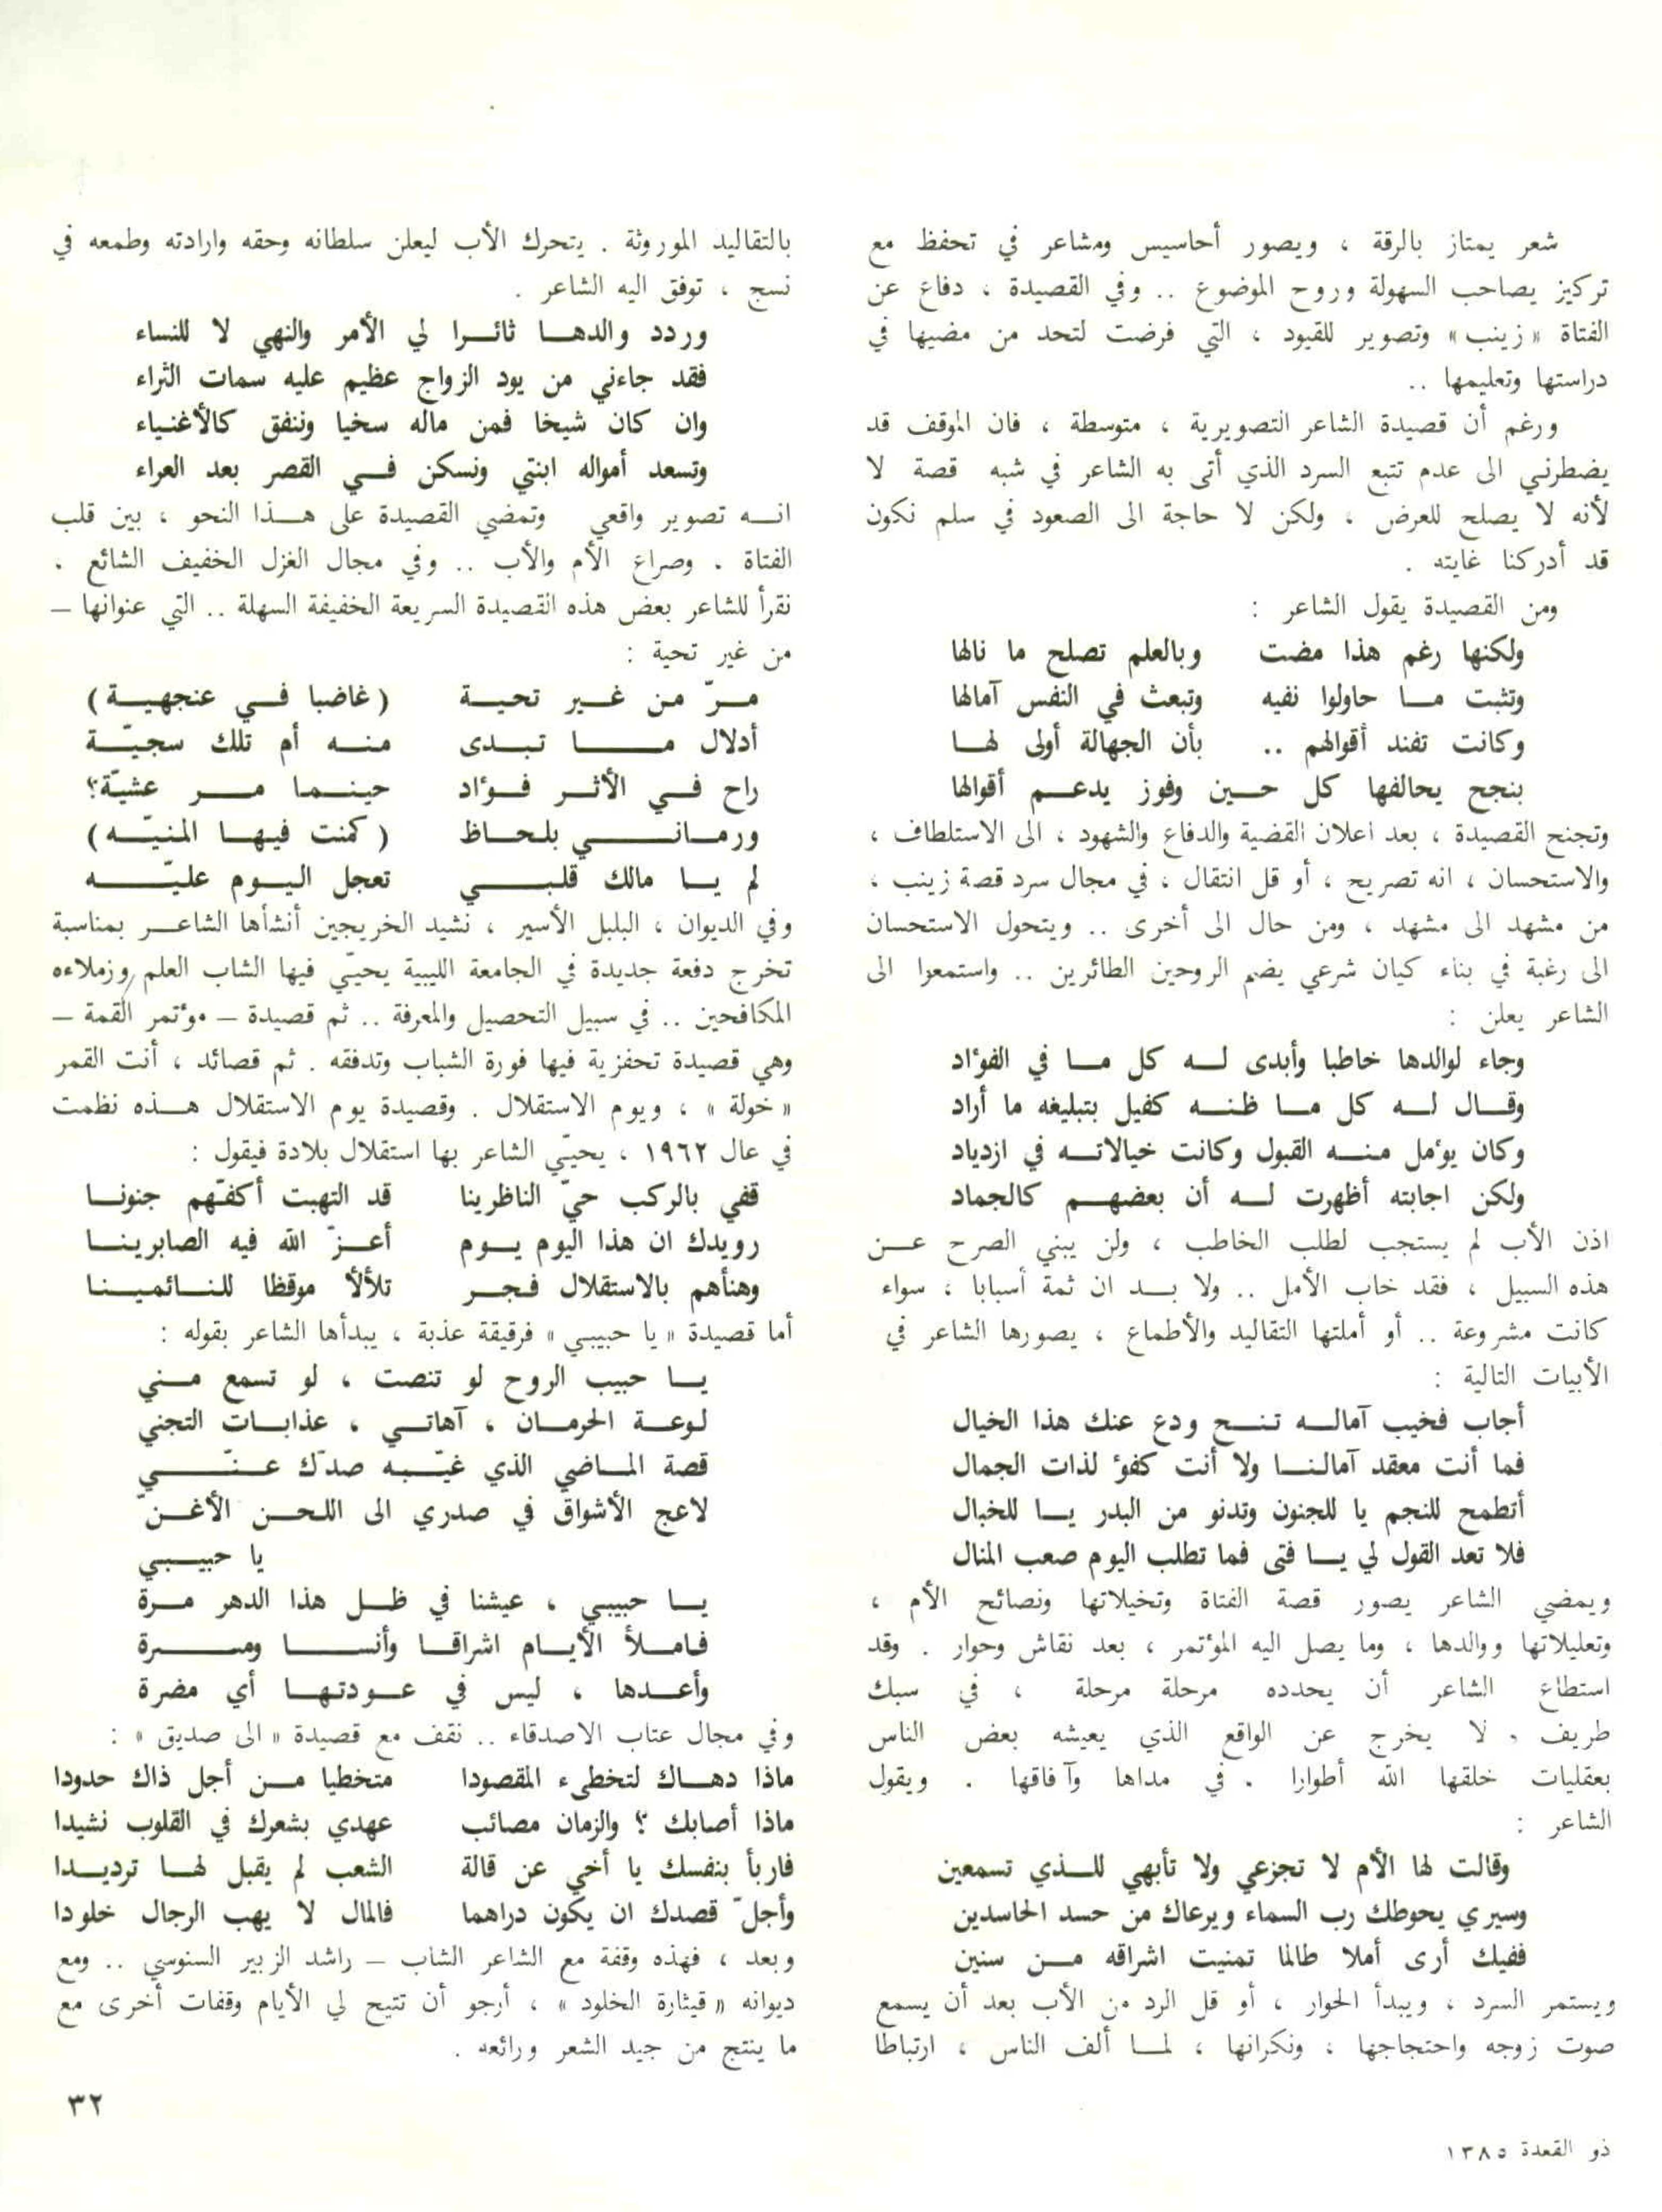 شعر يمتاز بالرقة ، ويصور أحاسيس ومشاعر في تحفظ مع
تركيز يصاحب السهولة وروح الموضوع .. وفي القصيدة ، دفاع عن
الفتاة « زينب » وتصوير للقيود ، التي فرضت لتحد من مضيها في
دراستها وتعليمها ..
ورغم أن قصيدة الشاعر التصويرية ، متوسطة ، فان الموقف قد
يضطرني الى عدم تتبع السرد الذي أتى به الشاعر في شبه قصة لا
لأنه لا يصلح للعرض ، ولكن لا حاجة الى الصعود في سلم نكون
قد أدركنا غايته .
ومن القصيدة يقول الشاعر :
ولكنها رغم هذا مضت وبالعلم تصلح ما نالها
وتثبت مـا حاولوا نفيه وتبعث في النفس آمالها
وكانت تفند أقوالهم .. بأن الجهالة أولى لهـا
بنجح يحالفها كل حـين وفوز يدعـم أقوالها
وتجنح القصيدة ، بعد اعلان القضية والدفاع والشهود ، الى الاستلطاف ،
والاستحسان ، انه تصريح ، أو قل انتقال ، في مجال سرد قصة زينب ،
من مشهد الى مشهد ، ومن حال الى أخرى .. ويتحول الاستحسان
الى رغبة في بناء كيان شرعي يضم الروحين الطائرين .. واستمعوا الى
الشاعر يعلن :
وجاء لوالدها خاطبا وأبدى لـه كل مـا في الفؤاد
وقـال لـه كل مـا ظنـه كفيل بتبليغه ما أراد
وكان يؤمل منـه القبول وكانت خيالاتـه في ازدياد
ولكن اجابته أظهرت لـه أن بعضهـم كالجماد
اذن الأب لم يستجب لطلب الخاطب ، ولن يبني الصرح عـن
هذه السبيل ، فقد خاب الأمل .. ولا بـد ان ثمة أسبابا ، سواء
كانت مشروعة .. أو أملتها التقاليد والأطماع ، يصورها الشاعر في
الأبيات التالية :
أجاب فخيب آمالـه تنـح ودع عنك هذا الخيال
فما أنت معقد آمالنـا ولا أنت كفؤ لذات الجمال
أتطمح للنجم يا للجنون وتدنو من البدر يـا للخبال
فلا تعد القول لي يـا فتى فما تطلب اليوم صعب المنال
ويمضي الشاعر يصور قصة الفتاة وتخيلاتها ونصائح الأم ،
وتعليلاتها ووالدها ، وما يصل اليه المؤتمر ، بعد نقاش وحوار . وقد
استطاع الشاعر أن يحدده مرحلة مرحلة ، في سبك
طريف ، لا يخرج عن الواقع الذي يعيشه بعض الناس
بعقليات خلقها الله أطوارا . في مداها وآفاقها . ويقول
الشاعر :
وقالت لها الأم لا تجزعي ولا تأبهي للـذي تسمعين
وسيري يحوطك رب السماء ويرعاك من حسد الحاسدين
ففيك أرى أملا طالما تمنيت اشراقه مـن سنين
ويستمر السرد ، ويبدأ الحوار ، أو قل الرد من الأب بعد أن يسمع
صوت زوجه واحتجاجها ، ونكرانها ، لمـا ألف الناس ، ارتباطا
بالتقاليد الموروثة . يتحرك الأب ليعلن سلطانه وحقه وارادته وطمعه في
نسج ، توفق اليه الشاعر .
وردد والدهـا ثائـرا لي الأمر والنهي لا للنساء
فقد جاءني من يود الزواج عظيم عليه سمات الثراء
وان كان شيخا فمن ماله سخيا وننفق كالأغنـياء
وتسعد أمواله ابنتي ونسكن فـي القصر بعد العراء
انـه تصوير واقعي وتمضي القصيدة على هـذا النحو ، بين قلب
الفتاة . وصراع الأم والأب .. وفي مجال الغزل الخفيف الشائع .
نقرأ للشاعر بعض هذه القصيدة السريعة الخفيفة السهلة .. التي عنوانها –
من غير تحية :
مـرّ مـن غـير تحيـة ( غاضبا فـي عنجهيـة )
أدلال مـا تبـدى منـه أم تلك سجيّـة
راح فـي الأثـر فـؤاد حينـما مـر عشيّة؟
ورمانـي بلحـاظ ( كمنت فيهـا المنيّـه )
لم يـا مالك قلبـي تعجل اليـوم عليّـه
وفي الديوان ، البلبل الأسير ، نشيد الخريجين أنشأها الشاعـر بمناسبة
تخرج دفعة جديدة في الجامعة الليبية يحيـّي فيها الشاب العلم وزملاءه
المكافحين .. في سبيل التحصيل والمعرفة .. ثم قصيدة – مؤتمر القمة –
وهي قصيدة تحفزية فيها فورة الشباب وتدفقه . ثم قصائد ، أنت القمر
« خولة » ، ويوم الاستقلال . وقصيدة يوم الاستقلال هـذه نظمت
في عال ١٩٦٢ ، يحيّي الشاعر بها استقلال بلادة فيقول :
قفي بالركب حيّ الناظرينا قد التهبت أكفّهم جنونـا
رويدك ان هذا اليوم يـوم أعـزّ الله فيه الصابرينـا
وهنأهم بالاستقلال فجـر تلألأ موقظا للنـائمينـا
أما قصيدة « يا حبيبي » فرقيقة عذبة ، يبدأها الشاعر بقوله :
يـا حبيب الروح لو تنصت ، لو تسمع مـني
لوعـة الحرمـان ، آهاتـي ، عذابـات التجني
قصة المـاضي الذي غيّـبه صدّك عـنّـي
لاعج الأشواق في صدري الى اللحـن الأغـنّ
يا حبيـبي
يـا حبيبي ، عيشنا في ظـل هذا الدهر مـرة
فاملـأ الأيـام اشراقـا وأنسـا ومسـرة
وأعـدها ، ليس في عـودتهـا أي مضرة
وفي مجال عتاب الاصدقاء .. نقف مع قصيدة « الى صديق » :
ماذا دهـاك لتخطىء المقصودا متخطيا مـن أجل ذاك حدودا
ماذا أصابك ؟ والزمان مصائب عهدي بشعرك في القلوب نشيدا
فاربأ بنفسك يا أخي عن قالة الشعب لم يقبل لهـا ترديـدا
وأجلّ قصدك ان يكون دراهما فالمال لا يهب الرجال خلودا
وبعد ، فهذه وقفة مع الشاعر الشاب – راشد الزبير السنوسي .. ومع
ديوانه « قيثارة الخلود » ، أرجو أن تتيح لي الأيام وقفات أخرى مع
ما ينتج من جيد الشعر ورائعه .
٣٢
ذو القعدة ١٣٨٥